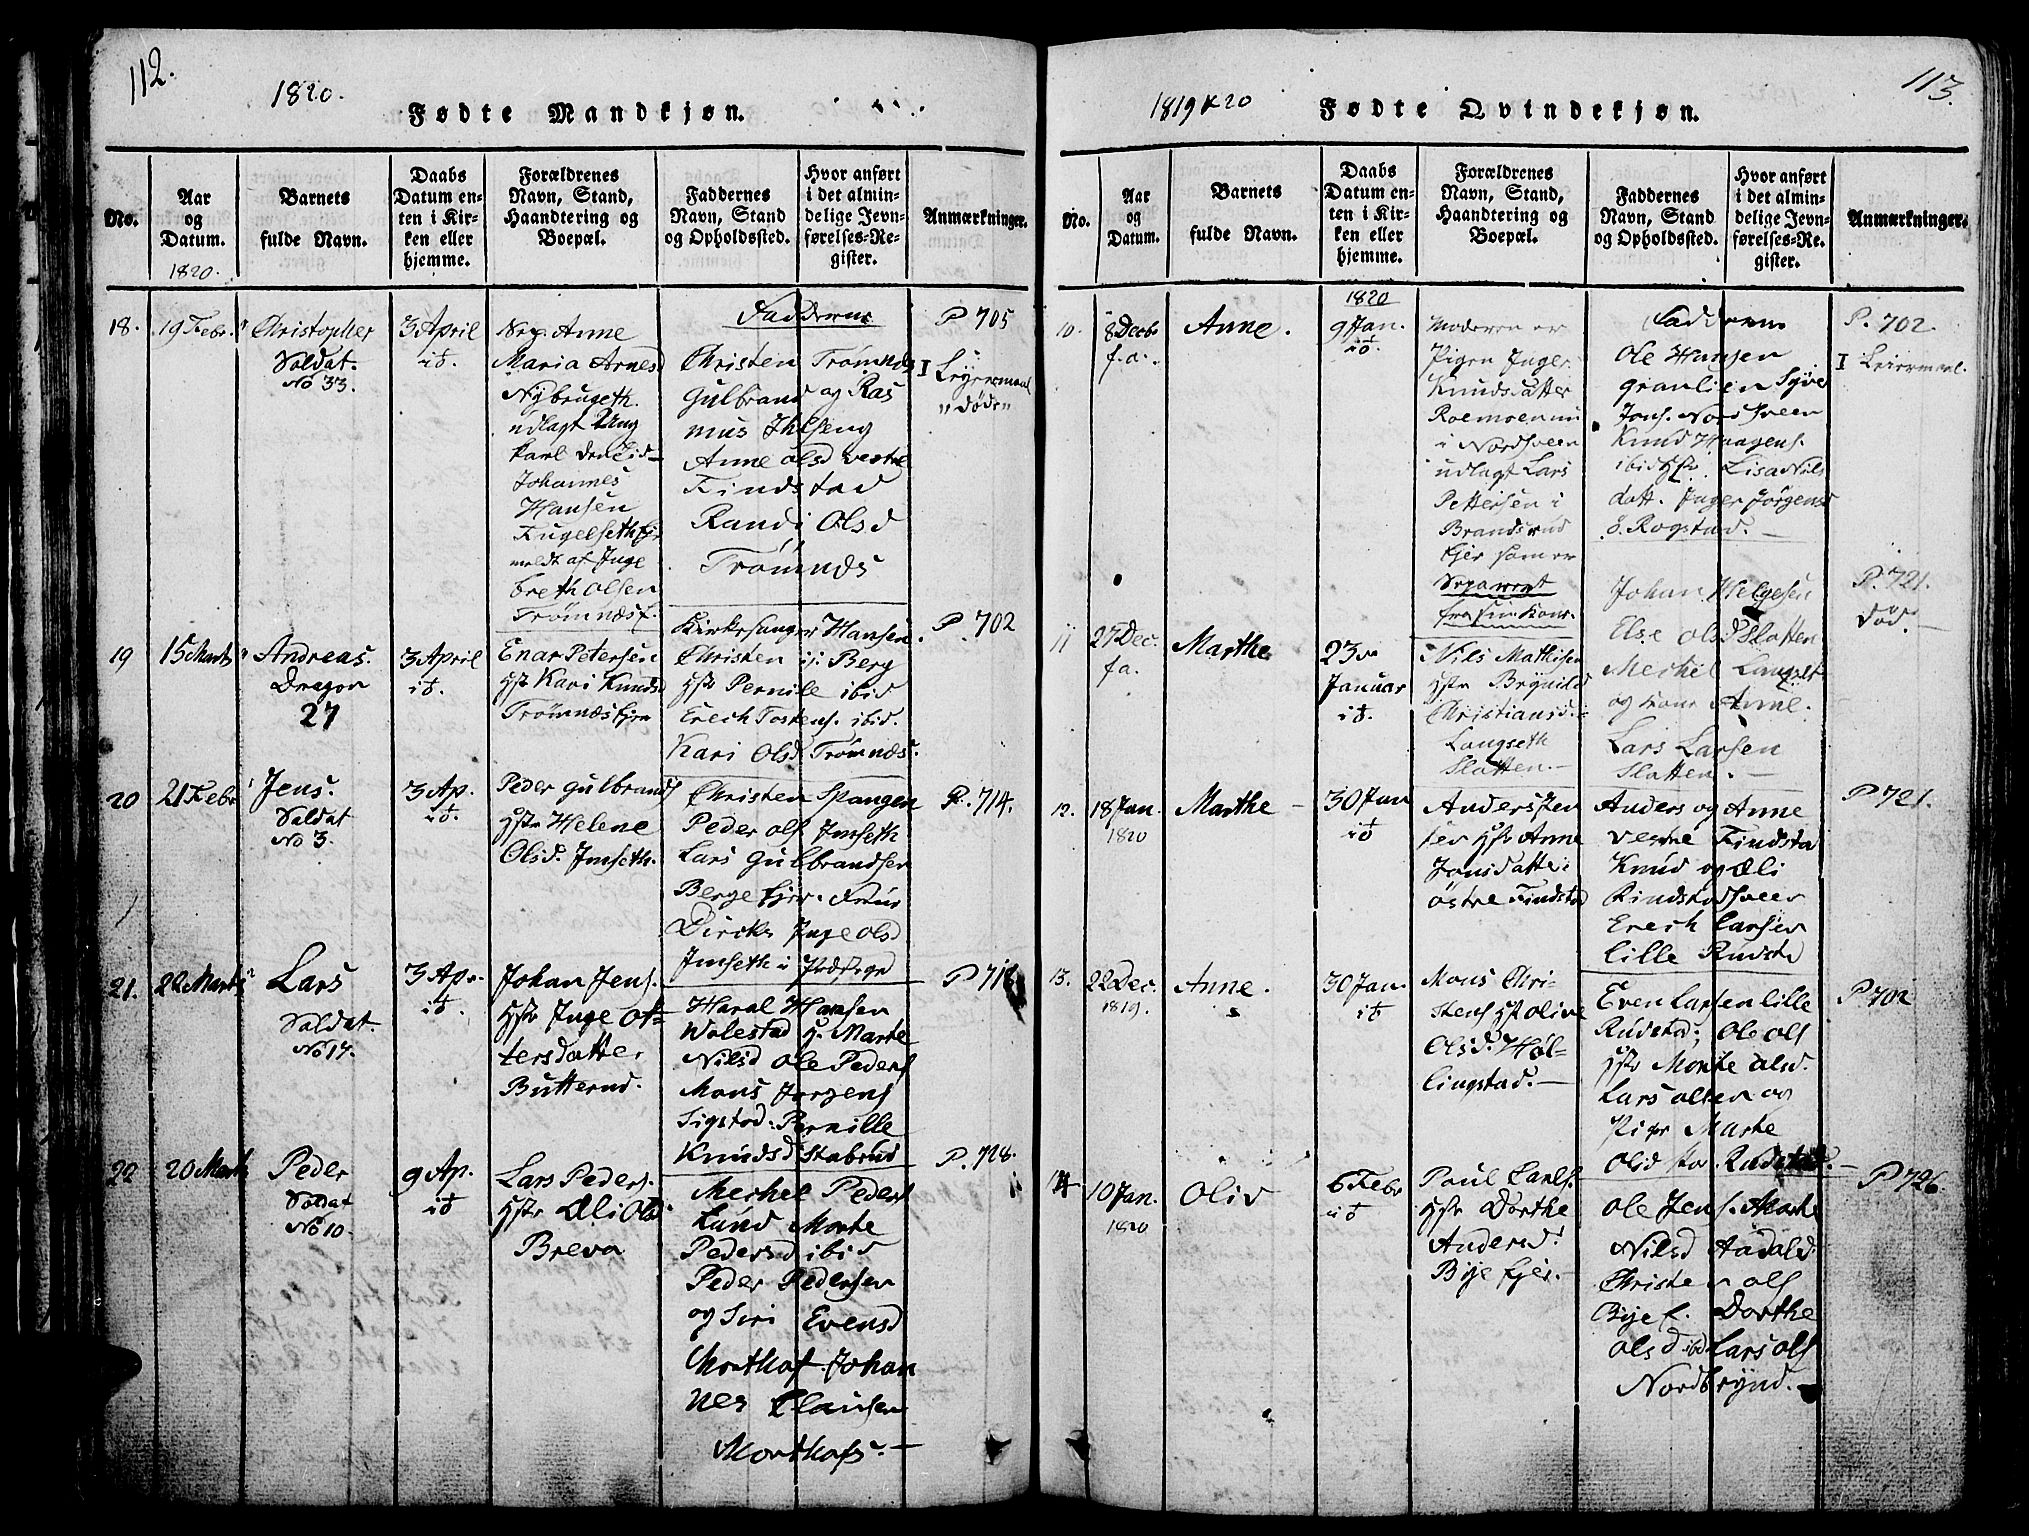 112.
1820.
Fødte Mandkjøn.
No.
Aar
og
Datum.
1820.
Barnets
fulde Navn.
Daabs
Datum en-
ten i Kir-
ken eller
hjemme.
Forældrenes
Navn, Stand,
Haandtering og
Boepæl.
Faddernes
Navn, Stand
og Opholdssted.
Hvor anført
i det almin-
delige Jevn-
førelses-Re-
gister.
Anmærkninger.
18.
19 Febr.
Christopher
Soldat.
No 33.
3 April
Anne
Maria Arnesd
Nybrugeth.
udlagt Ung
karl
Johannes
Hansen
Fugelseth
meldt af Inge
breth Olsen
Trømnæs
Fadderne
Christen Trømnæs
Gulbrand og Ras
mus Ihlseng
Anne Olsd vestre
Findstad
Randi Olsd
Trømnæs
P 705
Lejermaal
"døde"
19
15 Marts
Andreas.
Dragon
27
3 April
Enar Petersen
Hstr Kari Knudsd
Trømnæs Ejer
Kirkesanger Hansen.
Christen Berg
Hstr Pernile ibid
Erech Tostens. ibid.
Kari Olsd Trømnæs.
P. 702
20
21 Febr
Jens.
Soldat
No 3.
3 Ap.
Peder Gulbrands
Hstr Helene
Olsd. Imseth.
Christen Spangen
Peder Ols Imseth
Lars Gulbrandsen
Berge Ejer.
Dirckes Inge Olsd
Imseth i
P. 714.
21.
22 Marts
Lars
Soldat.
No 17.
3 Apr.
Johan Jens.
Hstr Inge Ot-
tersdatter
Butterud.
Haral Hansen
Wolestad H. Marte
Nilsd Ole Peders
Mons Jørgens
Sigstad. Pernille
Knudsd Stabrud
P 718
22
20 Marts
Peder
Soldat
No 10.
9 Ap.
Lars Peders.
Hstr Eli Olsd
Breva
Mechel Peders
Lund Marte
Pedersd ibid
Peder Pedersen
og Siri Evensd
Monthaf Johan
nes Clausen
Monthafs.
P. 728.
113.
1819 & 20
Fødte Qvindekjøn.
No.
Aar
og
Datum.
Barnets
fulde Navn.
Daabs
Datum en-
ten i Kir-
ken eller
hjemme.
Forældrenes
Navn, Stand,
Haandtering og
Boepæl.
Faddernes
Navn, Stand
og Opholdssted.
Hvor anført
i det almin-
delige Jevn-
førelses-Re-
gister.
Anmærkninger.
10.
8 Decbr
f. a.
Anne.
1820
9 Jan.
Moderen er
Pigen Inger
Knudsdatter
Roemoen nu
i Nordsveen
udlagt Lars
Pettersen i
Brandsrud
Ejer som er
Separeret
fra sin Kone.
Fadderne
Ole Hansen
granlien Syver
Jons. Nordsveen
Knud Haagens.
ibid Hstr. Lisa Nils
datt. Inger Jørgensd
ö. Rogstad.
P. 702.
Leiermaal.
11
27 Dec.
f a.
Marthe
23de
Januar
Nils Mathisen
Hstr Brynild
Christiansd.
Langseth
Slatten.
Johan Helgesen
Else Olsd Slatten
Mechel Langset
og Kone Anne.
Lars Larsen
Slatten.
P. 721.
død.
12.
18 Jan.
1820
Marthe
30 Jan
Anders Sten
sen Hstr Anne
Jonsdatter
östre Findstad
Anders og Anne
vestre Findstad
Knud og Eli
Rindstadsveen
Erech Larsen
lille Rudsta
P. 721.
13.
22 Dec.
1819.
Anne.
30 Jan.
Mons Chri-
stens Hstr Olive
Olsd. Høl-
lingstad.
Even Larsen lille
Rudstad; Ole Ols
Hstr Marthe
Lars Olsen og
Piger Marte
Olsd Rudstad.
P 702
14
10 Jan.
1820
Oliv
6 Febr
Paul Carls.
Hstr Dorthe
Andersd.
Bÿe Ejer.
Ole Jens. Marthe
Nilsd Aadald
Christen Ols
Bÿe E. Dorthe
Olsd ibd Lars Ols
Nordbrynd.
P 726.